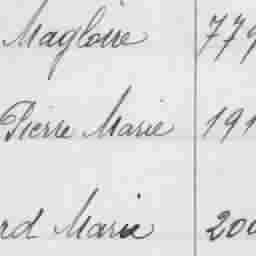 Magloire 779
Pierre Marie 191
rd Marie 200